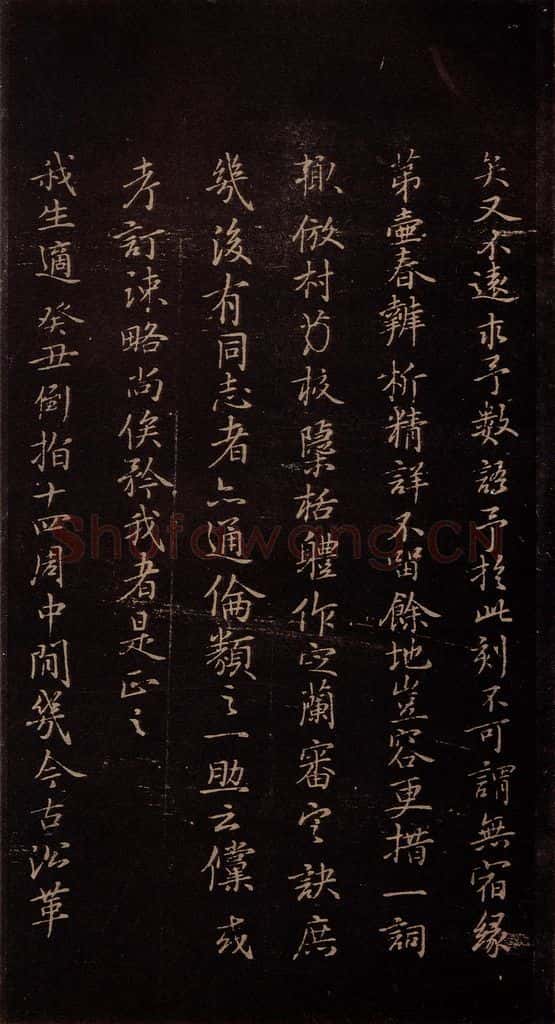 矣又不遠求予數語予於此刻不可謂無宿緣
第壺春辦析精詳不留餘地豈容更措一詞
輒倣村方校隱栝體作定蘭審定訣庶
幾後有同志者亦通倫類之一助云儻或
考訂疎略尚俟矜我者是正之
我生適癸丑倒指十四周中間幾今古沿革
Shufawang.CN